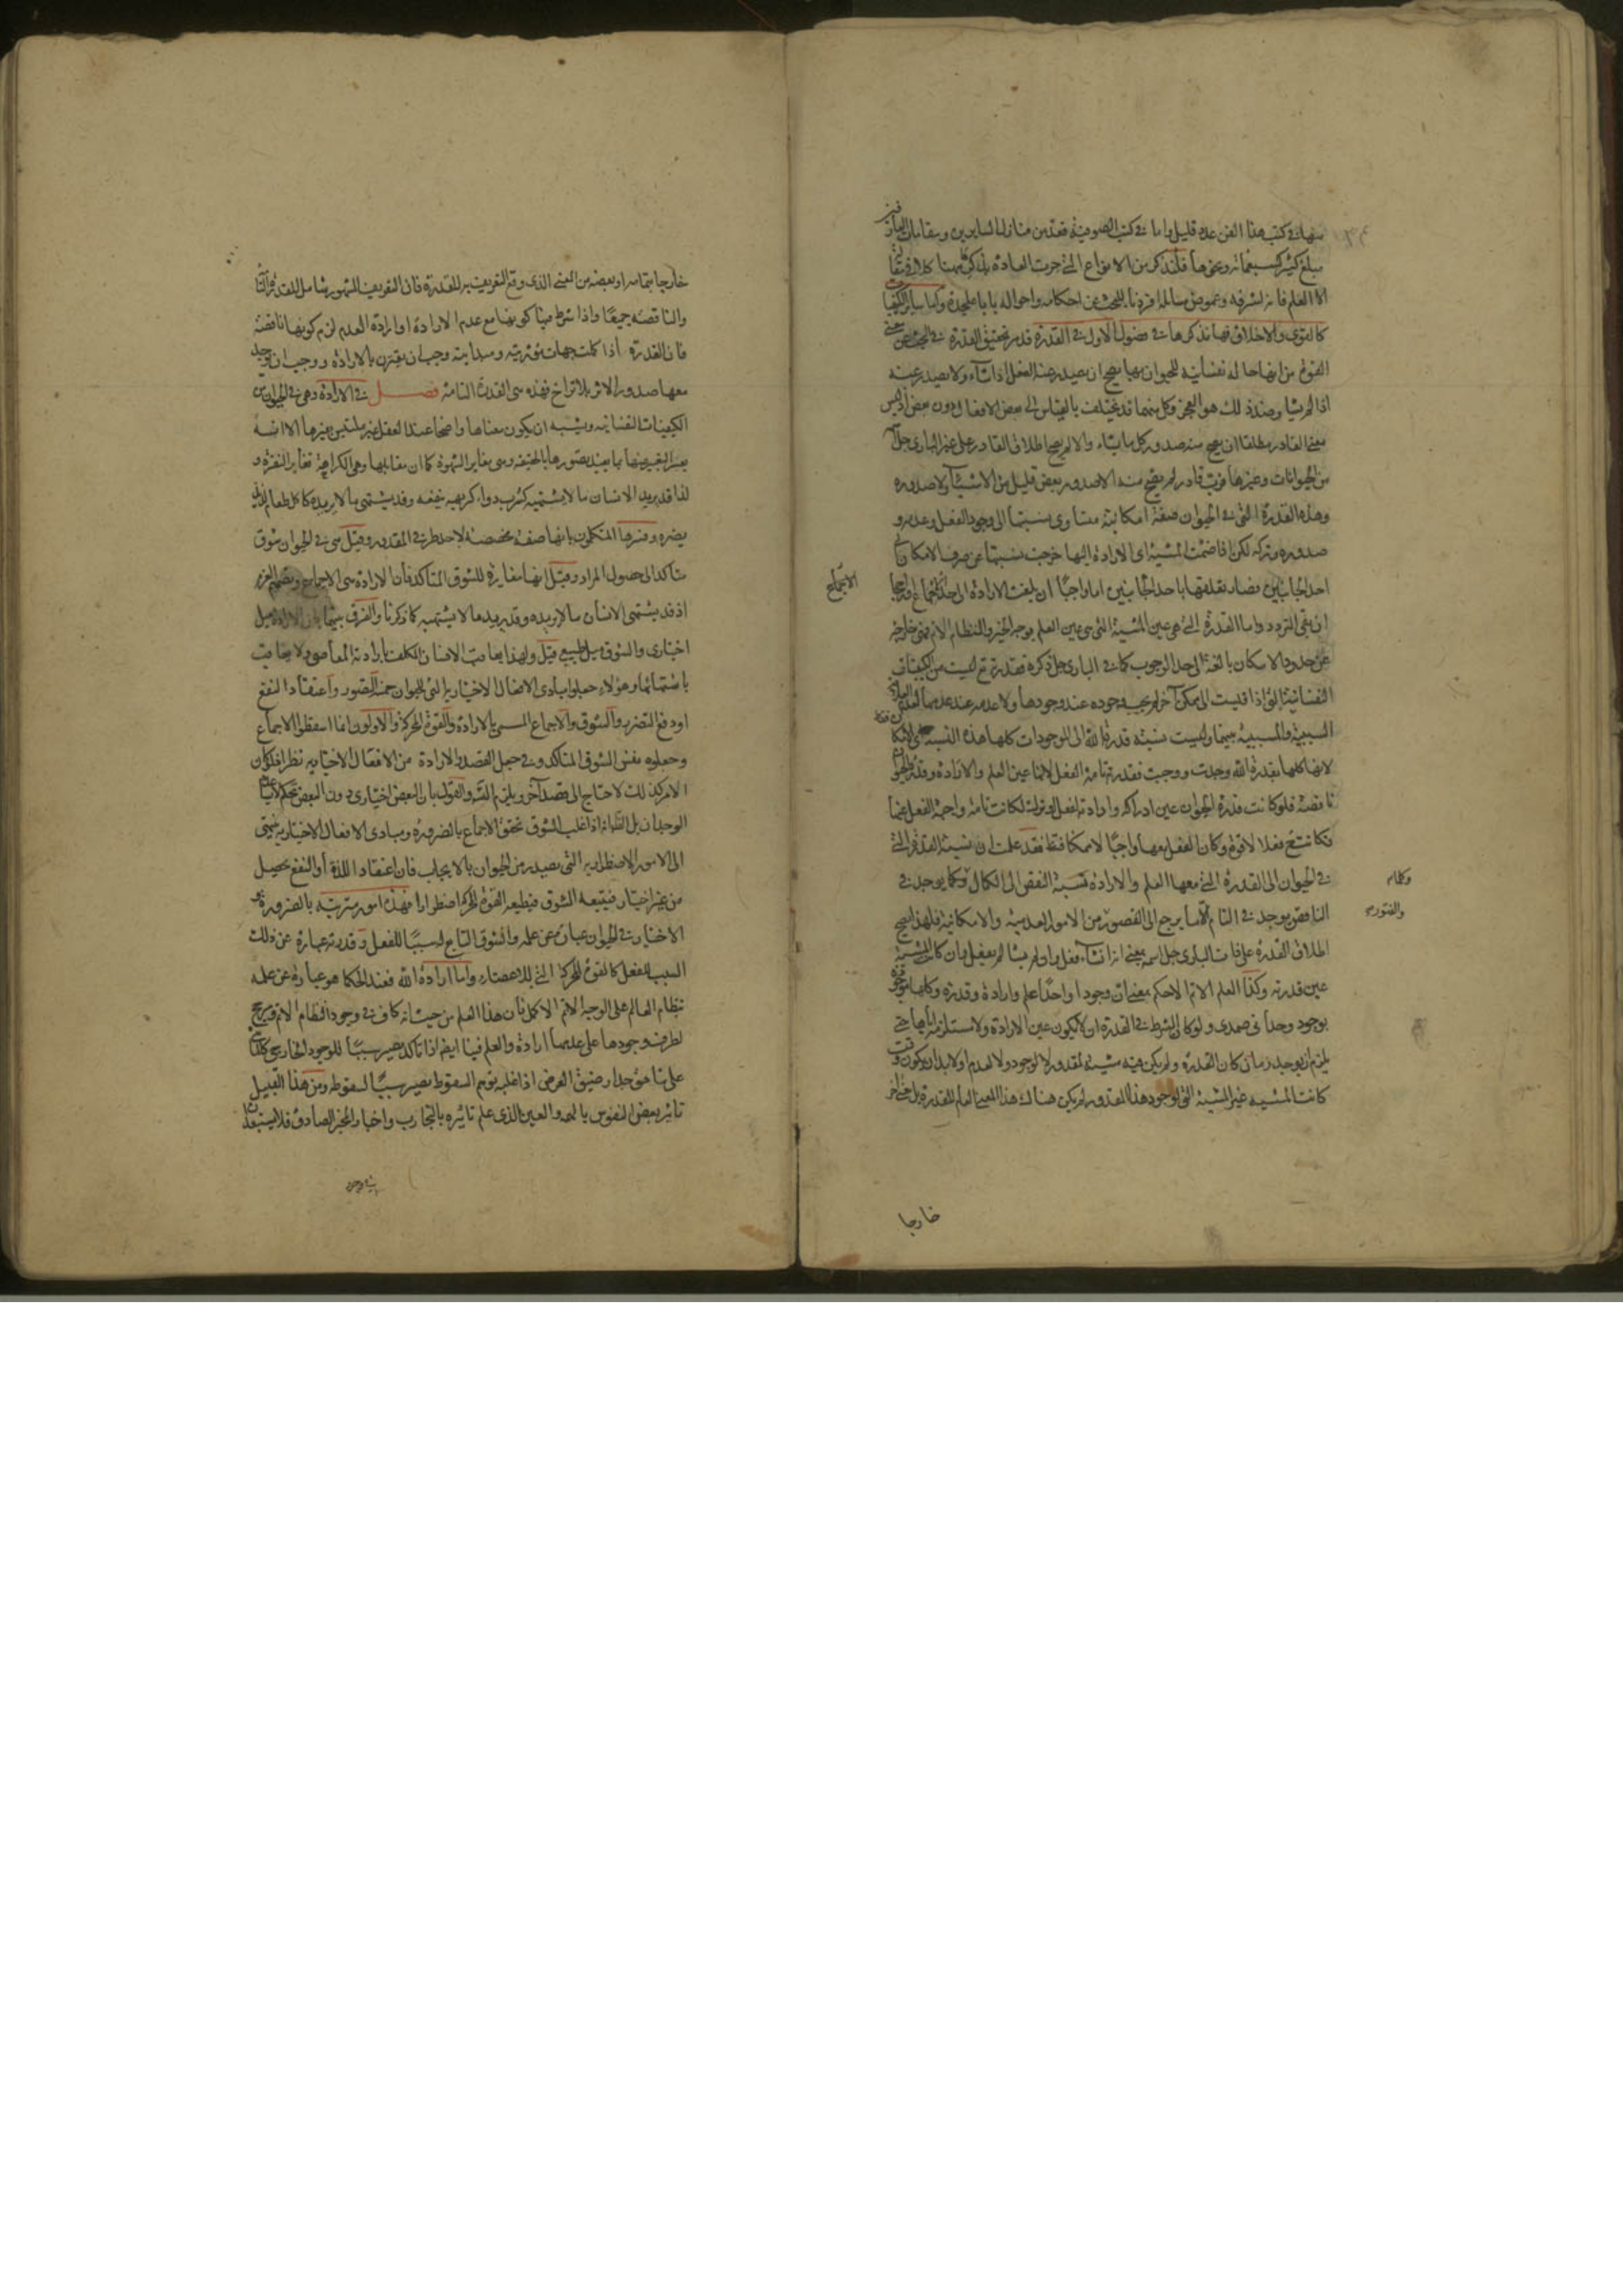 منها في كتب هذا الفن عدد قليل واما في كتب الصوفية فقد بين منازل السايرين ومقامات العارفين
مبلغ كثير كسبعمائة ونحوها فلنذكر من الانواع التي جرت العادة بذكرها هنا كلا في مقالة
الا العلم فانه لشرفه وغموض مسالكه افردنا للبحث عن احكامه واحواله بابا علىحدة وكذا ساير الكيفيات
كالقوى والاخلاق فها نذكرها في فصول الاول في القدرة قد مر تحقيق القدرة في البحث عن معنى
القوة من انها حالة نفسانية للحيوان بها يصح ان يصدر عنه الفعل اذا شاء ولا يصدر عنه
اذا لم يشا وضد ذلك هو العجز وكل منهما قد يختلف بالقياس الى بعض الافعال دون بعض اذ ليس
معنى القادر مطلقا ان يصح منه صدور كل ما يشاء والا لم يصح اطلاق القادر على غير الباري جل اسمه
من الحيوانات وغيرها فرب قادر لم يصح منه الا صدور بعض قليل من الاشياء ولا صدوره
وهذه القدرة التي في الحيوان صفة امكانية متساوي نسبتها الى وجود الفعل وعدمه و
صدوره وتركه لكن اذا ضمت المشية اي الارادة اليها خرجت نسبتها عن صرف الامكان الى
احد الجانبين فصار تعلقها باحد الجانبين اما واجبا ان بلغت الارادة الى حد الاجماع او راجحا
الاجماع
ان بقي التردد واما القدرة التي هي عين المشية التي هي عين العلم بوجه الخير والنظام الاتم فهي خارجة
عن حدود الامكان بالغة الى حد الوجوب كما في الباري جل ذكره فقدرته تع ليست من الكيفيات
النفسانية التي اذا قيست الى ممكن آخر لم يجب وجوده عند وجودها ولا عدمه عند عدمها
السببية والمسببية بينهما وليست نسبة قدرة الله الى الموجودات كلها هذه النسبة
لانها كلها بقدرة الله وجدت ووجبت فقدرته تامة الفعل لانها عين العلم والارادة وقدرة الحيوان
ناقصة فلو كانت قدرة الحيوان عين ادراكه وارادته لفعل او تركه لكانت تامة واجبة الفعل عنها
فكانت تع فعلا لا قوة وكان الفعل معها واجبا لا ممكنا فقط فقد علمت ان نسبة القدرة التي
في الحيوان الى القدرة التي معها العلم والارادة نسبة النقص الى الكمال وكما يوجد في
الناقص يوجد في التام الا ما يرجع الى القصور من الامور العدمية والامكانية فلهذا يصح
والفتور
اطلاق القدرة على ذات الباري جل اسمه بمعنى انه ان شاء فعل وان لم يشا لم يفعل وان كانت المشية
عين قدرته وكذا العلم الاتم الاحكم بمعنى ان وجودا واحدا علم وارادة وقدرة وكلها موجودة
بوجود واحد صمدي ولو كان الشرط في القدرة ان لا يكون عين الارادة ولا مستلزمة اياها حتى
يلزم ان يوجد زمان كان القدرة ولم يكن فيه مشية لمقدور لا لوجود ولا لعدم او لا بد ان يكون وقت
كانت المشية غير المشية التي لوجود هذا المقدور لم يكن هناك هذا المعنى العام للقدرة بل معنى آخر
خارجا
خارجا بتمامه او بعضه من المعنى الذي وقع التعريف به للقدرة فان التعريف المشهور شامل للقدرة التامة
والناقصة جميعا واذا شرط فيها كونها مع عدم الارادة او ارادة العدم لزم كونها ناقصة
فان القدرة اذا كملت جهات مؤثريته ومبدايته وجب ان يقترن بالارادة ووجب ان يوجد
معها صدور الاثر بلا تراخ فهذه هي القدرة التامة فصل في الارادة وهي في الحيوان من
الكيفيات النفسانية ويشبه ان يكون معناها واضحا عند العقل غير ملتبس بغيرها الا انه
يعسر التعبير عنها بما يفيد تصورها بالحقيقة وهي يغاير الشهوة كما ان مقابلها وهي الكراهة تغاير النفرة و
لذا قد يريد الانسان ما لا يشتهيه كشرب دواء كريه ينفعه وقد يشتهي ما لا يريده كاكل طعام لذيذ
يضره وفسرها المتكلمون بانها صفة مخصصة لاحد طرفي المقدور وقيل هي في الحيوان شوق
متاكد الى حصول المراد وقيل انها مغايرة للشوق المتاكد فان الارادة هي الاجماع وتصميم العزم
اذ قد يشتهي الانسان ما لا يريده وقد يريد ما لا يشتهيه كما ذكرنا والفرق بينهما بان الارادة ميل
اختياري والشوق ميل طبيعي قيل ولهذا يعاقب الانسان المكلف بارادته المعاصي ولا يعاقب
باشتهائها وهؤلاء جعلوا مبادي الافعال الاختيارية التي للحيوان خمسة التصور واعتقاد النفع
او دفع الضرر والشوق والاجماع المسمى بالارادة والقوة المحركة والاولون انما اسقطوا الاجماع
وجعلوه نفس الشوق المتاكد وفي جعل القصد والارادة من الافعال الاختيارية نظر اذ لو كان
الامر كذلك لاحتاج الى قصد آخر ويلزم التسلسل والقول بان البعض اختياري دون البعض تحكم
الوجدان بل الظاهر انه اذا غلب الشوق تحقق الاجماع بالضرورة ومبادي الافعال الاختيارية ينتهي
الى الامور الاضطرارية التي يصدر من الحيوان بالايجاب فان اعتقاد اللذة او النفع يحصل
من غير اختيار فيتبعه الشوق فيطيعه القوة المحركة اضطرارا فهذه امور مترتبة بالضرورة
الاختيار في الحيوان عبارة عن علمه والشوق التابع له سببا للفعل وقدرته عبارة عن ذلك
السبب للفعل كالقوة المحركة التي للاعضاء واما ارادة الله فعند الحكما هو عبارة عن علمه
بنظام العالم على الوجه الاتم الاكمل فان هذا العلم من حيث انه كاف في وجود النظام الاتم ومرجح
لطرف وجودها على عدمها ارادة والعلم فينا ايضا اذا تاكد يصير سببا للوجود الخارجي كالماشي
على شاهق جدار ضيق العرض اذا غلبه توهم السقوط يصير سببا لسقوطه ومن هذا القبيل
تاثير بعض النفوس بالهمة والعين الذي علم تاثيره بالتجارب واخبار المخبر الصادق فلا يستبعد